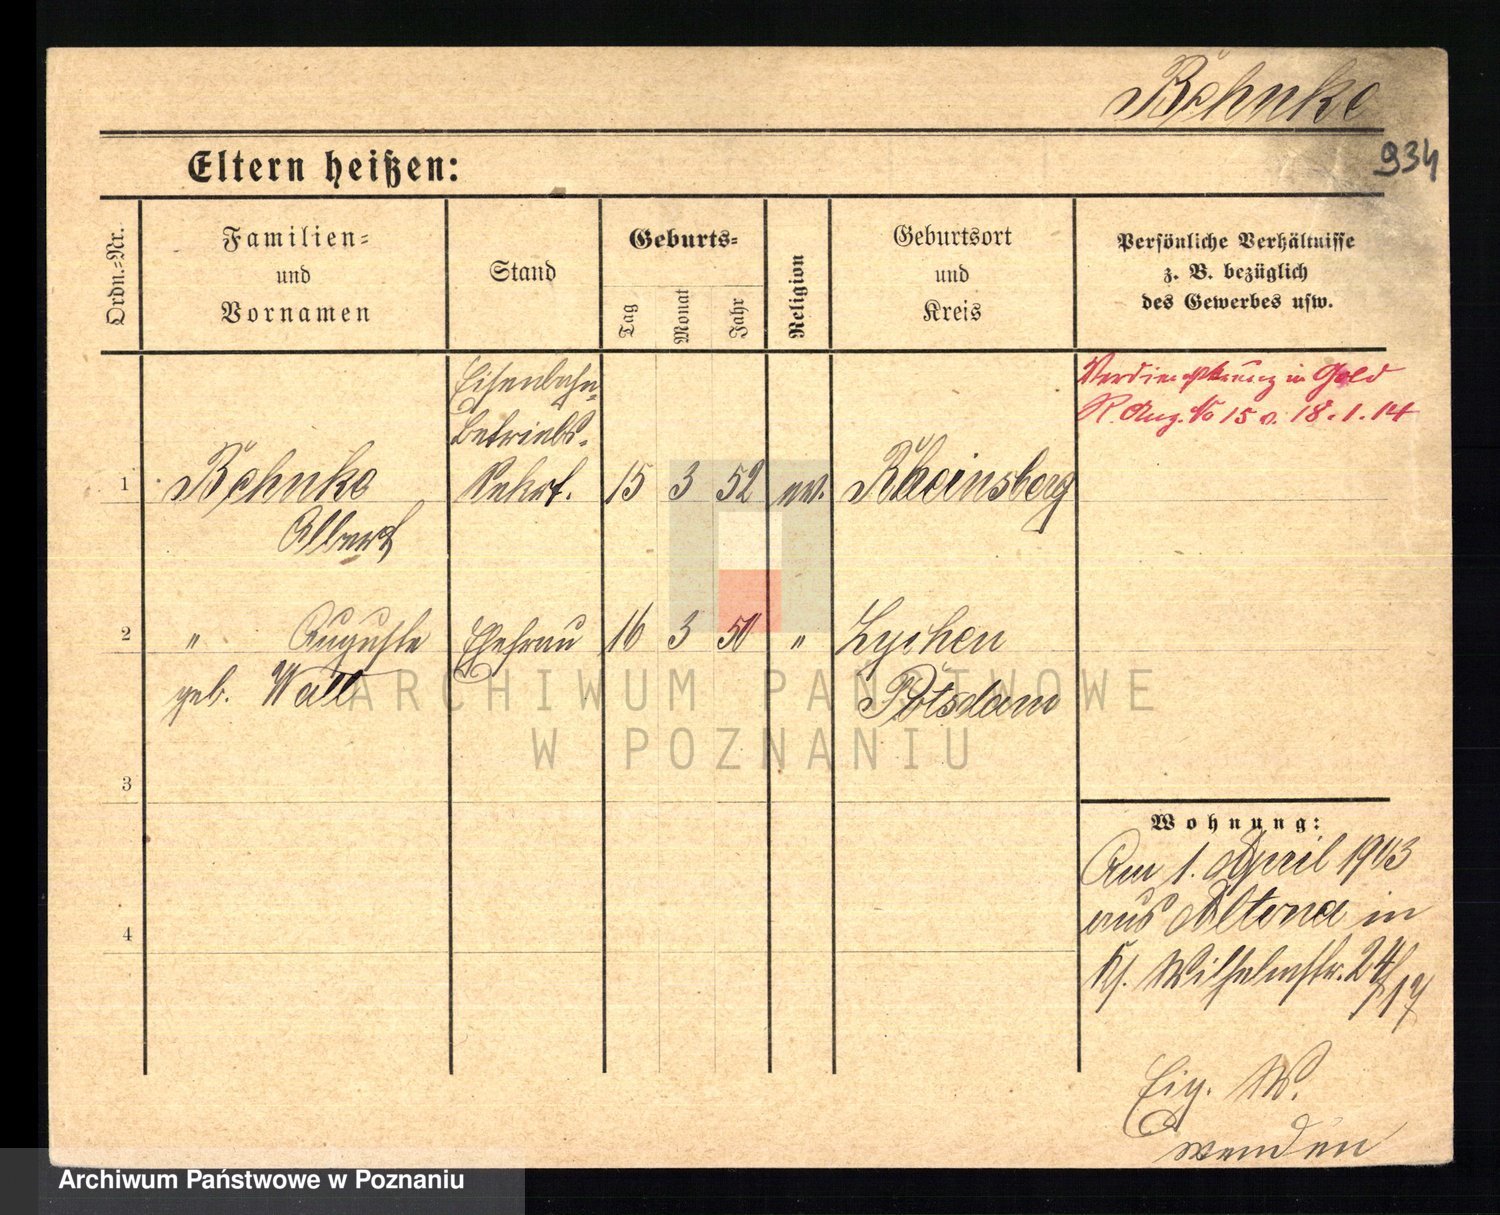 Böhnke
934
Eltern heißen:
Ordn.-Nr.
Familien-
und
Vornamen
Stand
Geburts-
Tag
Monat
Jahr
Religion
Geburtsort
und
Kreis
Persönliche Verhältnisse
z. B. bezüglich
des Gewerbes usw.
Eisenbahn-
Betriebs-
Sekret.
1 Böhnke 15 3 52 ev. Rheinsberg
Albert
2 " Auguste Ehefrau 16 3 50 " Lychen
geb. Wall Potsdam
3
4
in Gold
R. Anz. No 15 v. 18.1.14
Wohnung:
Am 1. April 1903
aus Altona in
Wilhelmstr. 24
Eig. W.
wenden
ARCHIWUM PAŃSTWOWE
W POZNANIU
Archiwum Państwowe w Poznaniu